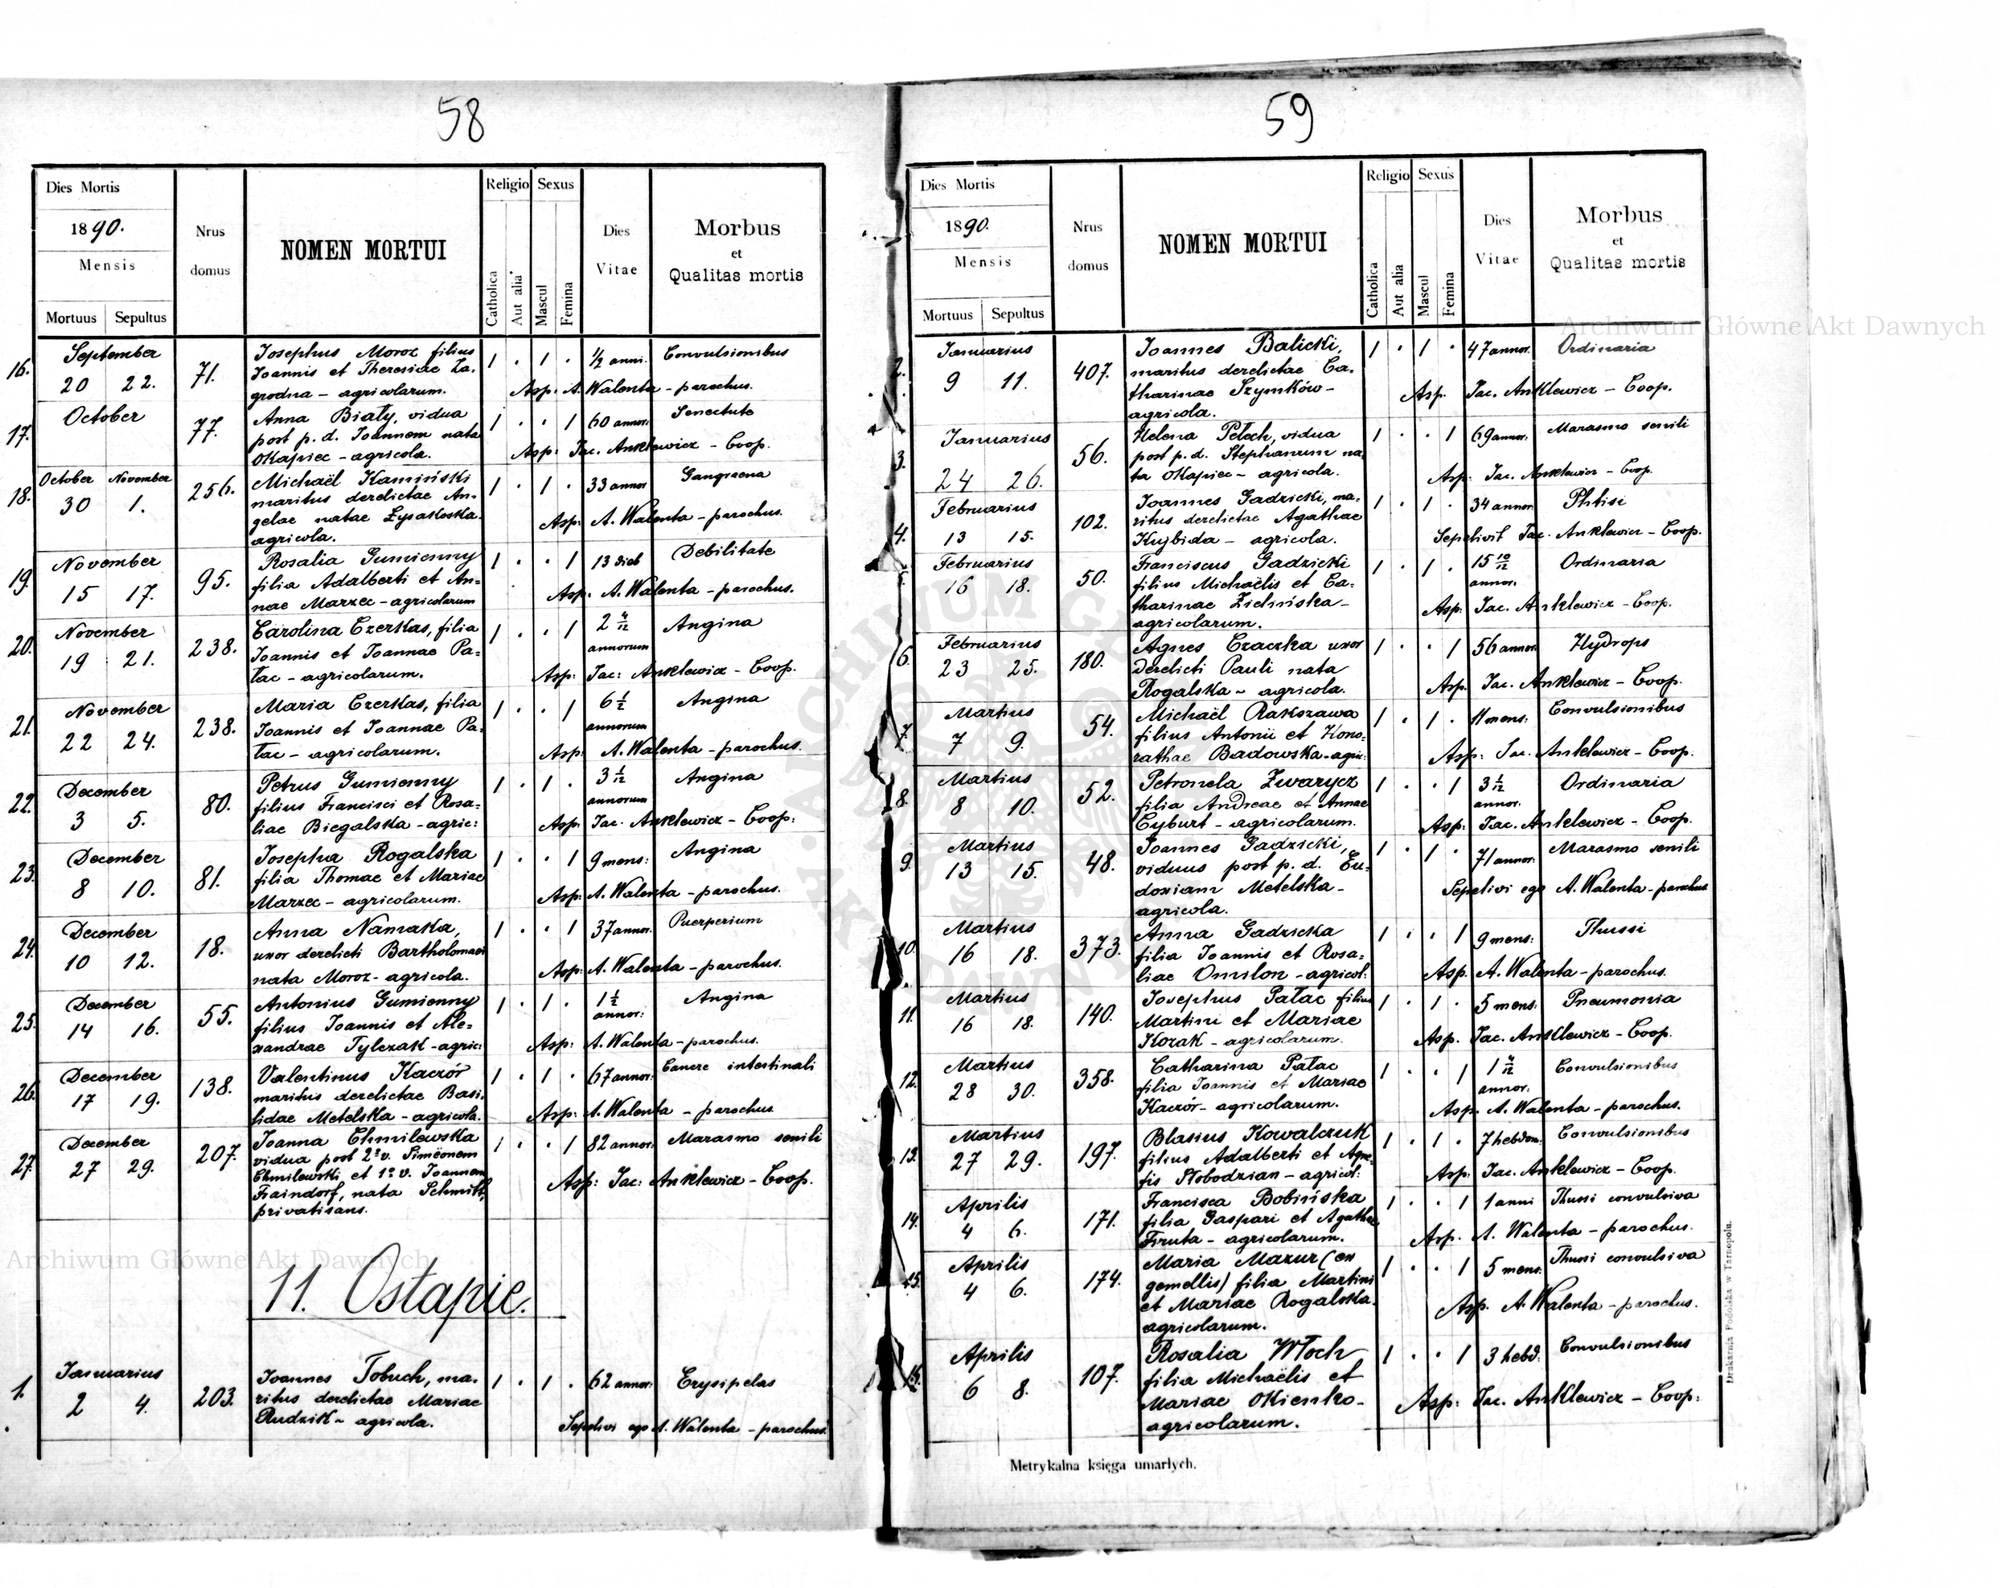 58
Dies Mortis
1890.
Mensis
Mortuus Sepultus
Nrus
domus
NOMEN MORTUI
Religio
Catholica
Aut alia
Sexus
Mascul
Femina
Dies
Vitae
Morbus
et
Qualitas mortis
16. September
20 22.
71.
Josephus Moroz filius
Joannis et Theresiae Za-
grodna - agricolarum.
1 . 1 .
1/2 anni.
Convulsionibus
Asp: A. Walenta - parochus.
17. October
77.
Anna Biały, vidua
post p. d. Joannem nata
Okapiec - agricola.
1 . . 1
60 annor.
Senectute
Asp: Jac. Anklewicz - Coop.
18. October November
30 1.
256.
Michaël Kamiński
maritus derelictae An-
gelae natae Łysakoska.
agricola.
1 . 1 .
33 annor
Gangraena
Asp: A. Walenta - parochus.
19. November
15 17.
95.
Rosalia Gumienny
filia Adalberti et An-
nae Marzec - agricolarum
1 . . 1
13 dieb
Debilitate
Asp: A. Walenta - parochus.
20. November
19 21.
238.
Carolina Czerkas, filia
Joannis et Joannae Pa-
łac - agricolarum.
1 . . 1
2 4/12
annorum
Angina
Asp: Jac: Anklewicz - Coop.
21. November
22 24.
238.
Maria Czerkas, filia
Joannis et Joannae Pa-
łac - agricolarum.
1 . . 1
6 1/2
annorum
Angina
Asp: A. Walenta - parochus.
22. December
3 5.
80.
Petrus Gumienny
filius Francisci et Rosa-
liae Biegalska - agric:
1 . 1 .
3 1/12
annorum
Angina
Asp: Jac. Anklewicz - Coop:
23. December
8 10.
81.
Josepha Rogalska
filia Thomae et Mariae
Marzec - agricolarum.
1 . . 1
9 mens:
Angina
Asp: A. Walenta - parochus.
24. December
10 12.
18.
Anna Namaka,
uxor derelicti Bartholomaei
nata Moroz - agricola.
1 . . 1
37 annor.
Puerperium
Asp: A. Walenta - parochus.
25. December
14 16.
55.
Antonius Gumienny
filius Joannis et Ale-
xandrae Tylczak - agric:
1 . 1 .
1 1/2
annor:
Angina
Asp: A. Walenta - parochus.
26. December
17 19.
138.
Valentinus Kaczór
maritus derelictae Basi-
lidae Metelska - agricola.
1 . 1 .
67 annor.
Cancre intestinali
Asp: A. Walenta - parochus
27. December
27 29.
207.
Joanna Chmilewska
vidua post 2º v. Simeonem
Chmilewski et 1º v. Joannem
Fraindorf, nata Schmitt,
privatisans.
1 . . 1
82 annor.
Marasmo senili
Asp: Jac: Anklewicz - Coop.
11. Ostapie.
1. Januarius
2 4.
203.
Joannes Tobuch, ma-
ritus derelictae Mariae
Rudzik - agricola.
1 . 1 .
62 annor:
Erysipelas
Sepelivi ego A. Walenta - parochus.
59
Dies Mortis
1890.
Mensis
Mortuus Sepultus
Nrus
domus
NOMEN MORTUI
Religio
Catholica
Aut alia
Sexus
Mascul
Femina
Dies
Vitae
Morbus
et
Qualitas mortis
2. Januarius
9 11.
407.
Joannes Balicki,
maritus derelictae Ca-
tharinae Szymków -
agricola.
1 . 1 .
47 annor.
Ordinaria
Asp. Jac. Anklewicz - Coop.
3. Januarius
24 26.
56.
Helena Pełech, vidua
post p. d. Stephanum na-
ta Okapiec - agricola.
1 . . 1
69 annor.
Marasmo senili
Asp: Jac. Anklewicz - Coop.
4. Februarius
13 15.
102.
Joannes Gadzicki, ma-
ritus derelictae Agathae
Kujbida - agricola.
1 . 1 .
34 annor.
Phtisi
Sepelivit Jac. Anklewicz - Coop.
5. Februarius
16 18.
50.
Franciscus Gadzicki
filius Michaëlis et Ca-
tharinae Zielińska -
agricolarum.
1 . 1 .
15 10/12
annor.
Ordinaria
Asp. Jac. Anklewicz - Coop.
6. Februarius
23 25.
180.
Agnes Czaczka uxor
derelicti Pauli nata
Rogalska - agricola.
1 . . 1
56 annor.
Hydrops
Asp. Jac. Anklewicz - Coop.
7. Martius
7 9.
54.
Michaël Rakszawa
filius Antonii et Hono-
rathae Badowska - agric:
1 . 1 .
11 mens:
Convulsionibus
Asp: Jac. Anklewicz - Coop.
8. Martius
8 10.
52.
Petronela Zwarycz
filia Andreae et Annae
Cyburt - agricolarum.
1 . . 1
3 1/12
annor.
Ordinaria
Asp: Jac. Anklewicz - Coop.
9. Martius
13 15.
48.
Joannes Gadzicki,
viduus post p. d. Eu-
doxiam Metelska -
agricola.
1 . 1 .
71 annor.
Marasmo senili
Sepelivi ego A. Walenta - parochus
10. Martius
16 18.
373.
Anna Gadzicka
filia Joannis et Rosa-
liae Omilon - agricol:
1 . . 1
9 mens:
Thussi
Asp. A. Walenta - parochus.
11. Martius
16 18.
140.
Josephus Pałac filius
Martini et Mariae
Kozak - agricolarum
1 . 1 .
5 mens.
Pneumonia
Asp. Jac. Anklewicz - Coop.
12. Martius
28 30.
358.
Catharina Pałac
filia Joannis et Mariae
Kaczór - agricolarum.
1 . . 1
1 4/12
annor.
Convulsionibus
Asp. A. Walenta - parochus.
13. Martius
27 29.
197.
Blasius Kowalczuk
filius Adalberti et Agne-
tis Słobodzian - agricol:
1 . 1 .
7 hebdom.
Convulsionibus
Asp. Jac. Anklewicz - Coop.
14. Aprilis
4 6.
171.
Francisca Bobińska
filia Gaspari et Agathae
Firuta - agricolarum.
1 . . 1
1 anni
Thussi convulsiva
Asp. A. Walenta - parochus.
15. Aprilis
4 6.
174.
Maria Mazur (ex
gemellis) filia Martini
et Mariae Rogalska.
agricolarum.
1 . . 1
5 mens.
Thussi convulsiva
Asp. A. Walenta - parochus.
Aprilis
6 8.
107.
Rosalia Włoch
filia Michaëlis et
Mariae Okienko -
agricolarum.
1 . . 1
3 hebd.
Convulsionibus
Asp: Jac. Anklewicz - Coop:
Metrykalna księga umarłych.
Drukarnia Podolska w Tarnopolu.
Archiwum Główne Akt Dawnych
Archiwum Główne Akt Dawnych